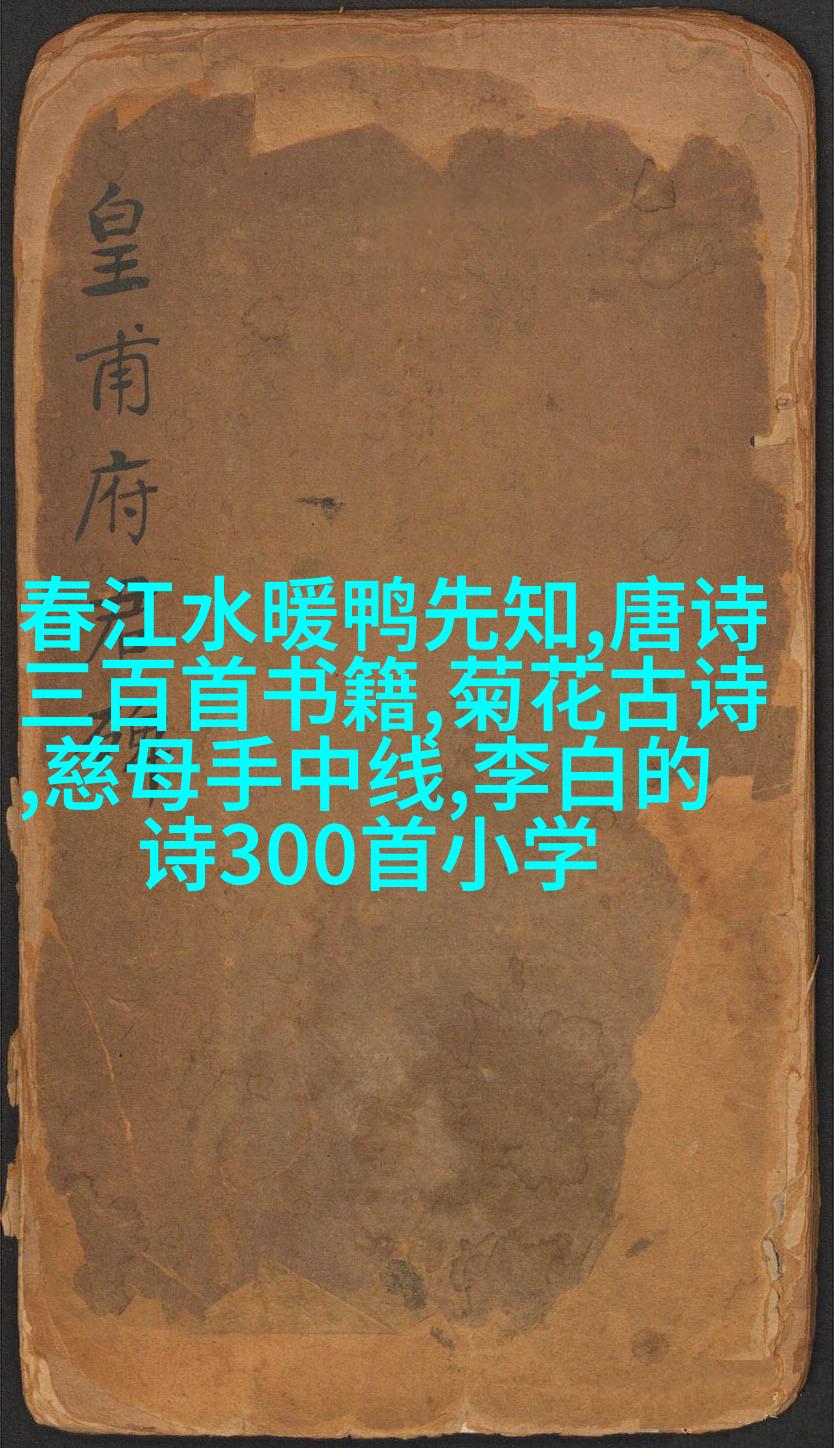 皇甫府君碑
春江水暖鸭先知,唐诗
三百首书籍,菊花古诗
,慈母手中线,李白的
诗300首小学